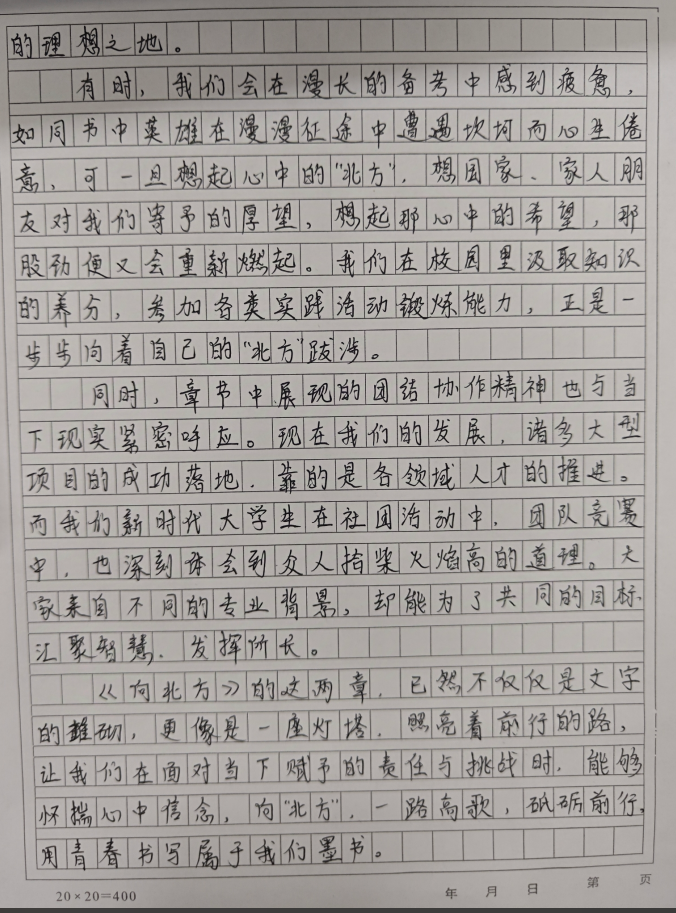 的理想之地。
有时，我们会在漫长的备考中感到疲惫，
如同书中英雄在漫漫征途中遭遇坎坷而心生倦
意，可一旦想起心中的"北方"，想国家、家人朋
友对我们寄予的厚望，想起那心中的希望，那
股劲便又会重新燃起。我们在校园里汲取知识
的养分，参加各类实践活动锻炼能力，正是一
步步向着自己的"北方"跋涉。
同时，章节中展现的团结协作精神也与当
下现实紧密呼应。现在我们的发展，诸多大型
项目的成功落地，靠的是各领域人才的推进。
而我们新时代大学生在社团活动中，团队竞赛
中，也深刻体会到众人拾柴火焰高的道理。大
家来自不同的专业背景，却能为了共同的目标
汇聚智慧，发挥所长。
《向北方》的这两章，已然不仅仅是文字
的堆砌，更像是一座灯塔，照亮着前行的路，
让我们在面对当下赋予的责任与挑战时，能够
怀揣心中信念，向"北方"，一路高歌，砥砺前行，
用青春书写属于我们墨书。
20×20=400 年 月 日 第 页